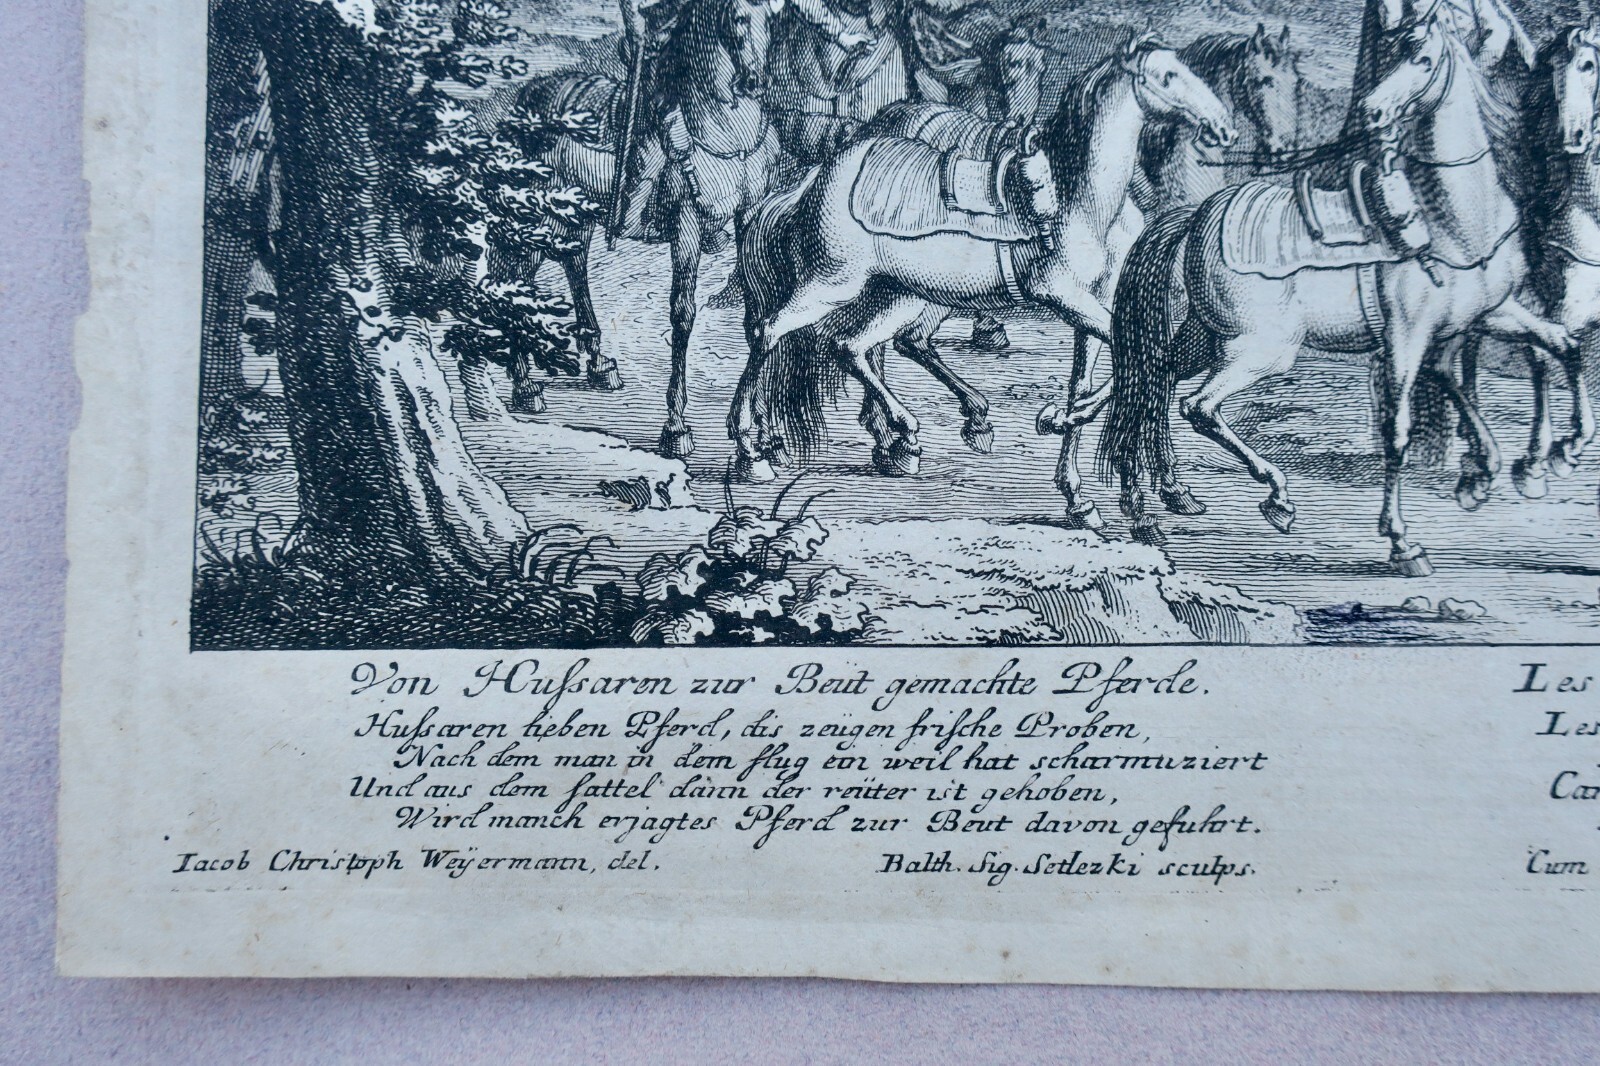 Von Hussaren zur Beüt gemachte Pferde.
Hussaren lieben Pferd, dis zeügen frische Proben,
Nach dem man in dem flug ein weil hat scharmuziert
Und aus dem sattel dann der reüter ist gehoben,
Wird manch erjagtes Pferd zur Beut davon gefuhrt.
Iacob Christoph Weÿermann, del.
Balth. Sig. Setlezki sculps.
Les
Les
Car
Cum